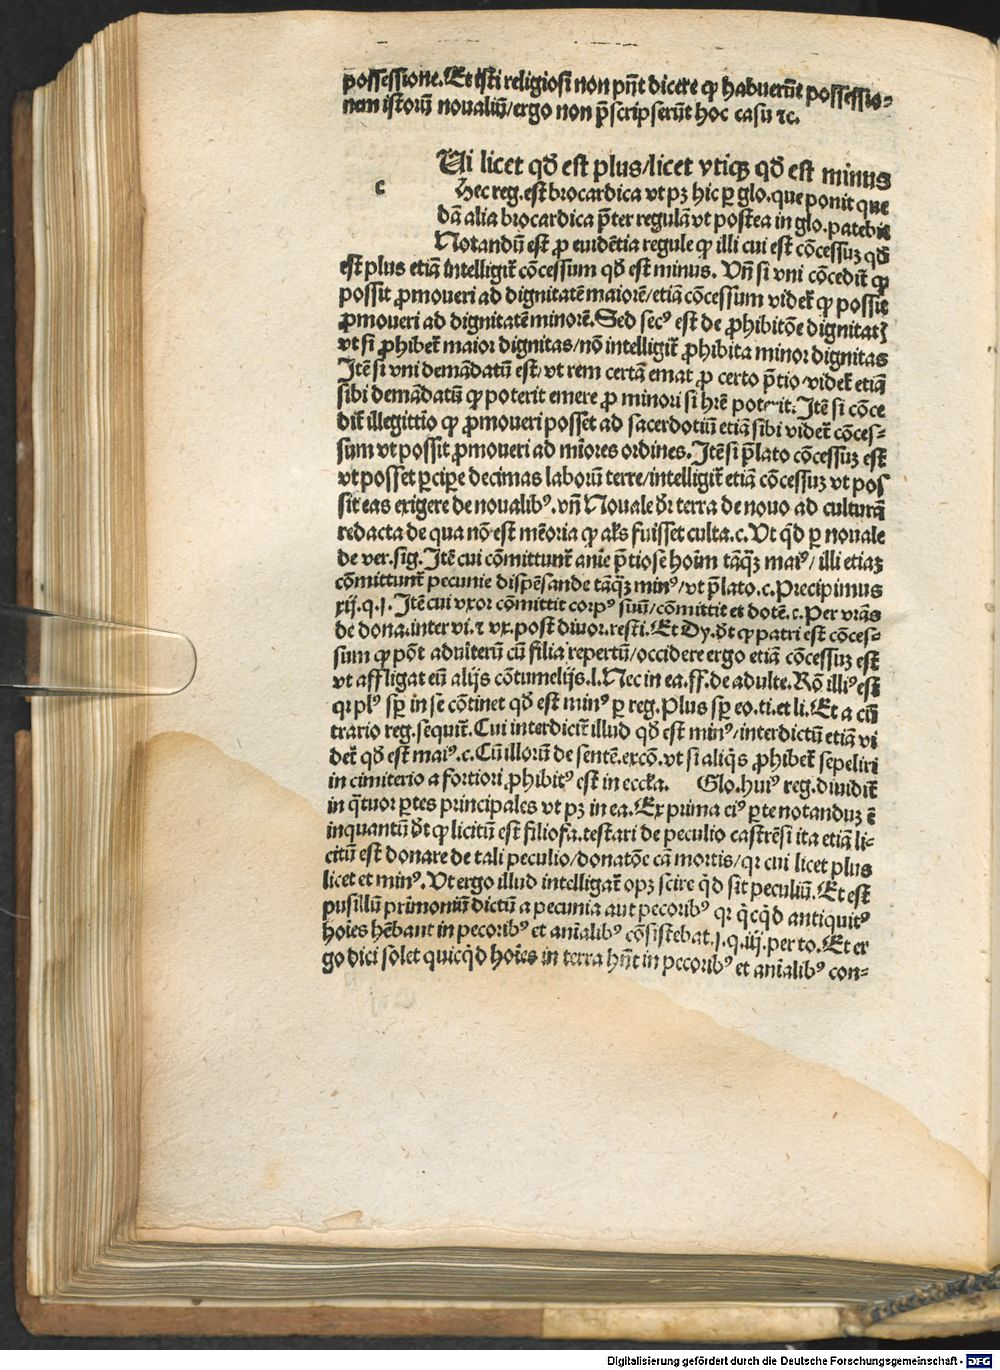 possessione. Et isti religiosi non pñt dicere ꝙ habuerũt possessio⸗
nem istorũ noualiũ/ergo non p̃scripserũt hoc casu ⁊c.
c
Ui licet qđ est plus/licet vtiqꝫ qđ est minus
Hec reg. est brocardica vt pꝫ hic ꝑ glo. que ponit que
dã alia brocardica p̃ter regulã vt postea in glo. patebit
Notandũ est ꝓ euidẽtia regule ꝙ illi cui est cõcessuꝫ qđ
est plus etiã intelligit̃ cõcessum qđ est minus. Vñ si vni cõcedit̃ ꝙ
possit ꝓmoueri ad dignitatẽ maiorẽ/etiã cõcessum videt̃ ꝙ possit
ꝓmoueri ad dignitatẽ minorẽ. Sed secꝰ est de ꝓhibitõe dignitatꝭ
vt si ꝓhibet̃ maior dignitas/nõ intelligit̃ ꝓhibita minor dignitas
Itẽ si vni demãdatũ est/vt rem certã emat ꝓ certo p̃tio/videt̃ etiã
sibi demãdatũ ꝙ poterit emere ꝓ minori si hr̃e poterit. Itẽ si cõce
dit̃ illegittĩo ꝙ ꝓmoueri posset ad sacerdotiũ etiã sibi videt̃ cõces⸗
sum vt possit ꝓmoueri ad mĩores ordines. Itẽ si p̃lato cõcessuꝫ est
vt posset ꝑciꝑe decimas laborũ terre/intelligit̃ etiã cõcessuꝫ vt pos
sit eas exigere de noualibꝰ. vñ Nouale dr̃ terra de nouo ad culturã
redacta de qua nõ est mẽoria ꝙ al̃s fuisset culta. c. Vt qͥd ꝑ nouale
de ver. sig. Itẽ cui cõmittunt̃ anĩe p̃tiose hoĩm tãqꝫ̃ maiꝰ/ illi etiaꝫ
cõmittunt̃ pecunie dispẽsande tãqꝫ̃ minꝰ/vt p̃lato. c. Precipimus
xij. q. j. Itẽ cui vxor cõmittit corpꝰ suũ/cõmittit et dotẽ. c. Per vr̃as
de dona. inter vi. ⁊ vx. post diuor. resti. Et Dy. dt̃ ꝙ patri est cõces⸗
sum ꝙ põt adulterũ cũ filia repertũ/occidere ergo etiã cõcessuꝫ est
vt affligat eũ alijs cõtumelijs. l. Nec in ea. ff. de adulte. Rõ illiꝰ est
qꝛ plꝰ sꝑ in se cõtinet qđ est minꝰ ꝑ reg. Plus sꝑ eo. ti. et li. Et a cõ
trario reg. sequit̃. Cui interdicit̃ illud qđ est minꝰ/interdictũ etiã vi
det̃ qđ est maiꝰ. c. Cũ illorũ de sentẽ. excõ. vt si aliqͥs ꝓhibet̃ sepeliri
in cimiterio a fortiori ꝓhibitꝰ est in eccl̃ia. Glo. huiꝰ reg. diuidit̃
in q̃tuor ꝑtes principales vt pꝫ in ea. Ex prima eiꝰ ꝑte notanduꝫ ẽ
inquantũ dt̃ ꝙ licitũ est filiofa. testari de peculio castrẽsi ita etiã li⸗
citũ est donare de tali peculio/donatõe cã mortis/qꝛ cui licet plus
licet et minꝰ. Vt ergo illud intelligat̃ opꝫ scire qͥd sit peculiũ. Et est
pusillũ pr̃imoniũ dictũ a pecunia aut pecoribꝰ qꝛ qͥcqͥd antiquitꝰ
hoĩes hẽbant in pecoribꝰ et anĩalibꝰ cõsistebat. j. q. iij. per to. Et er
go dici solet quicqͥd hoĩes in terra hñt in pecoribꝰ et anĩalibꝰ con⸗
Digitalisierung gefördert durch die Deutsche Forschungsgemeinschaft - DFG